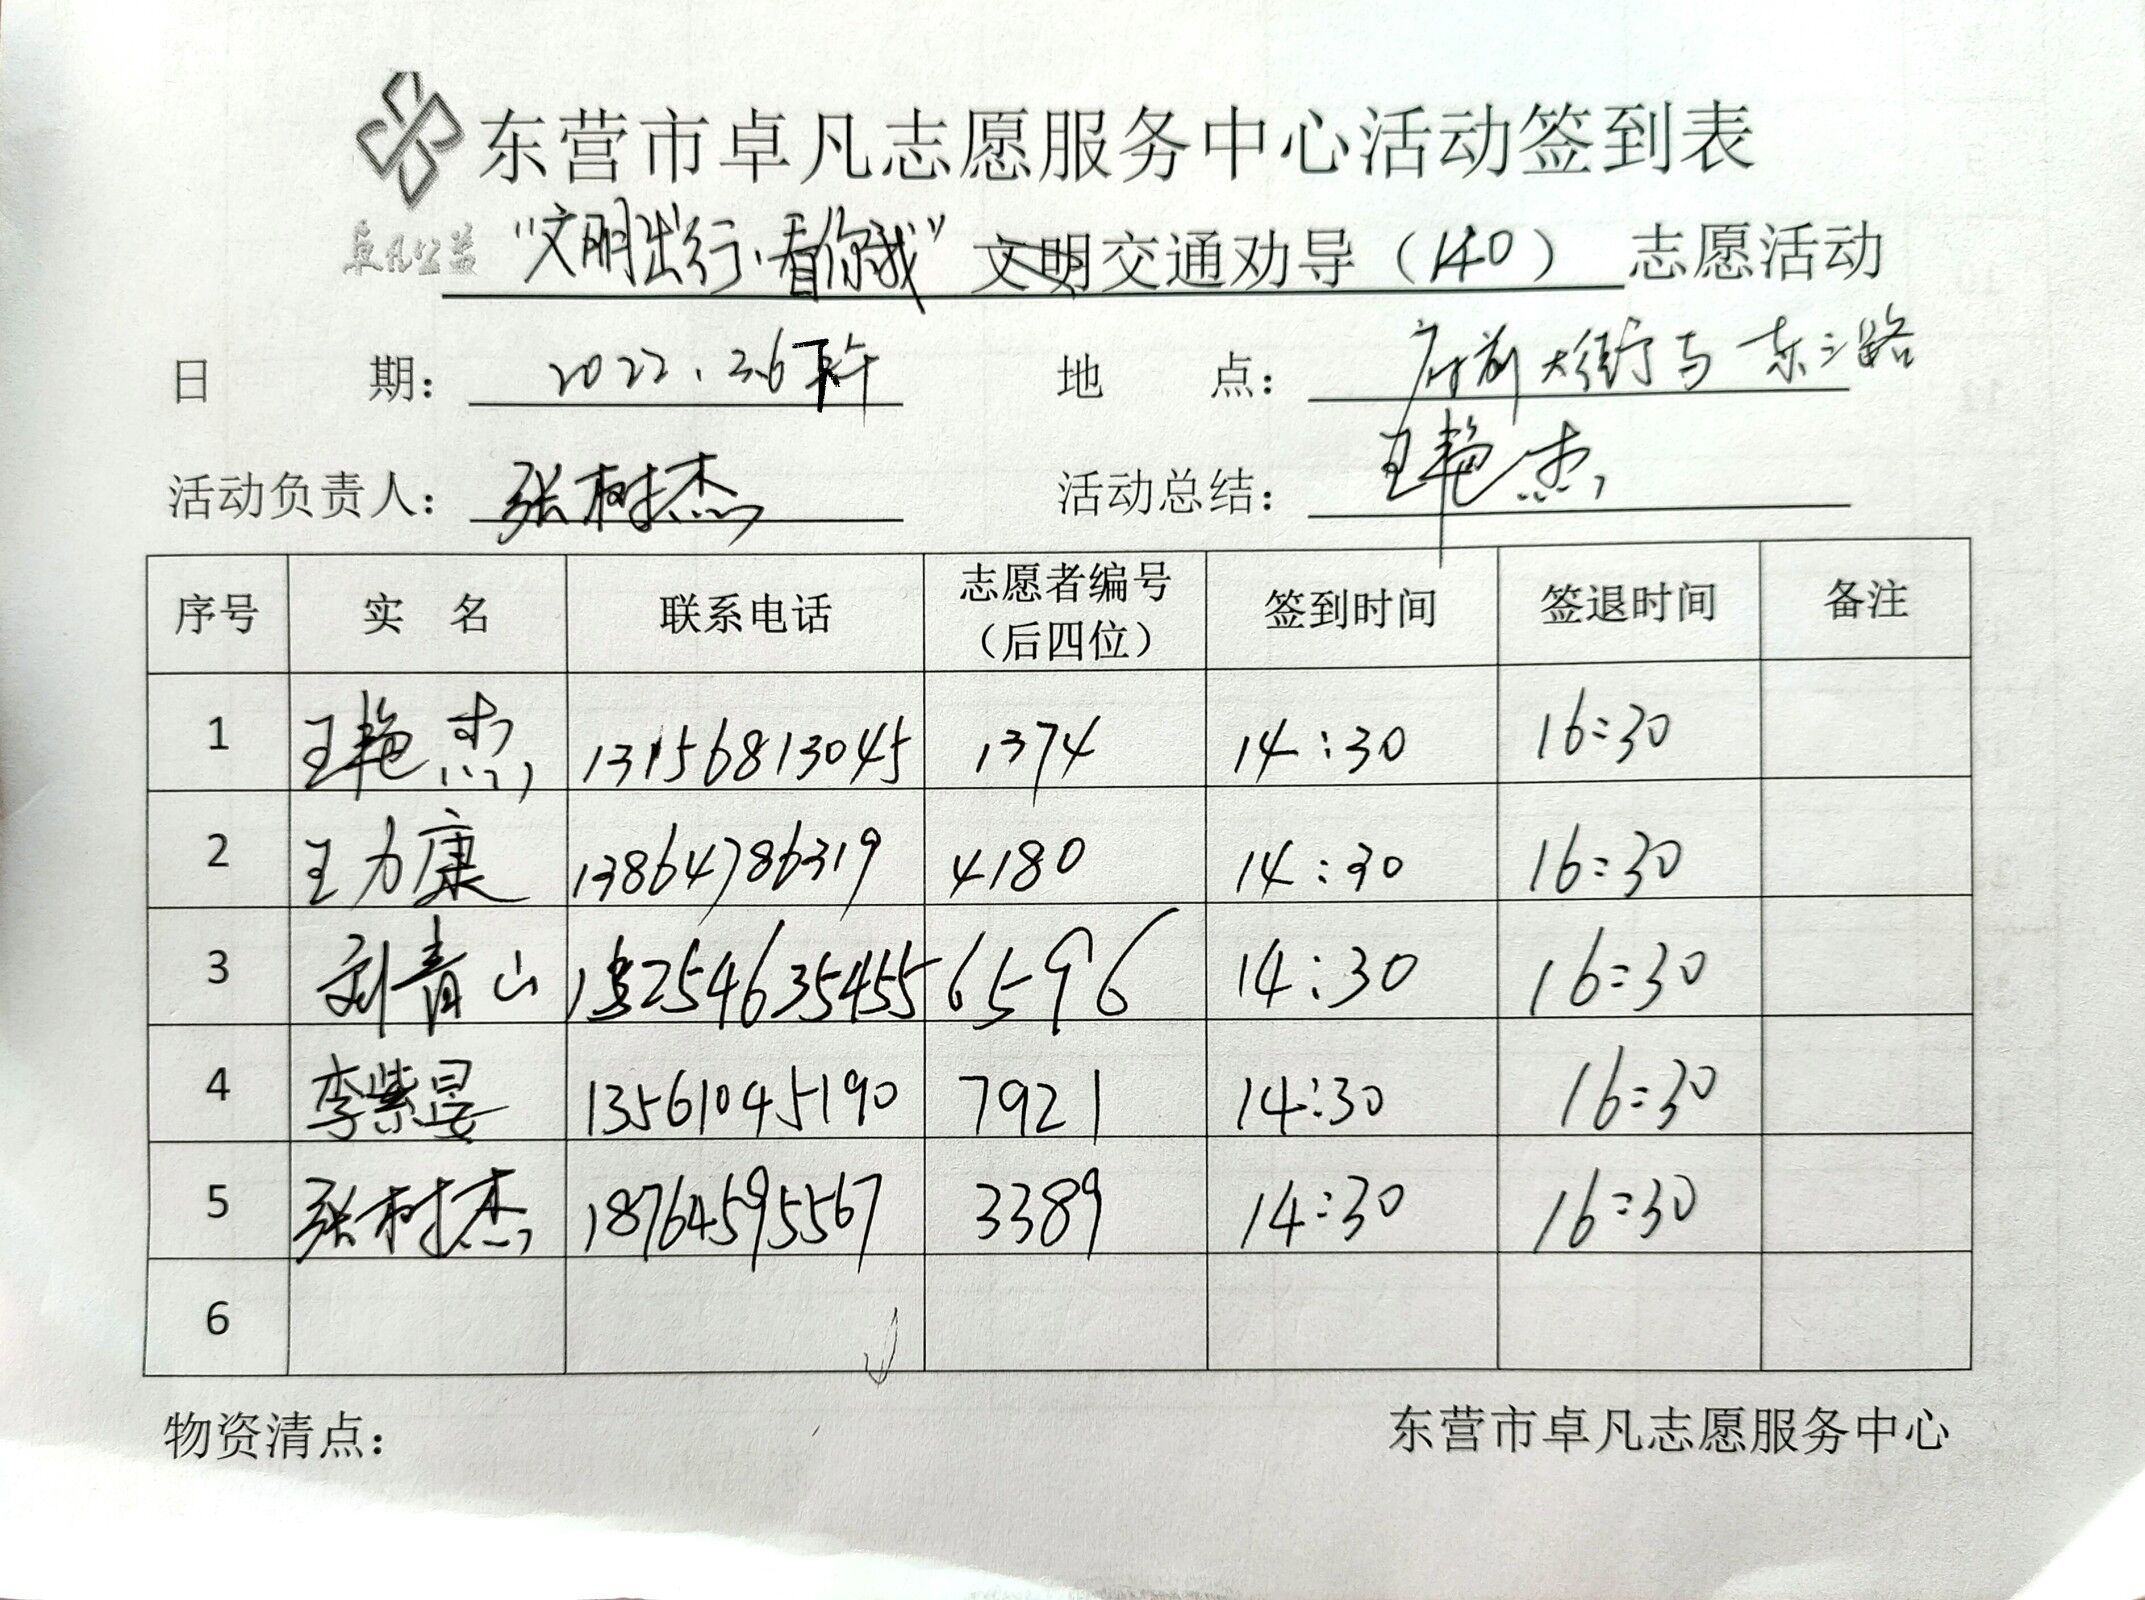 东营市卓凡志愿服务中心活动签到表
卓凡公益
“文明出行、看你我”文明交通劝导（140）志愿活动
日期：2022.3.6下午 地点：府前大街与东三路
活动负责人：张树杰 活动总结：王艳杰
序号 实名 联系电话 志愿者编号（后四位） 签到时间 签退时间 备注
1 王艳杰 13156813045 1374 14:30 16:30
2 王力康 13864786319 4180 14:30 16:30
3 刘青山 15254635455 6596 14:30 16:30
4 李紫旻 13561045190 7921 14:30 16:30
5 张树杰 18764595567 3389 14:30 16:30
6
物资清点： 东营市卓凡志愿服务中心